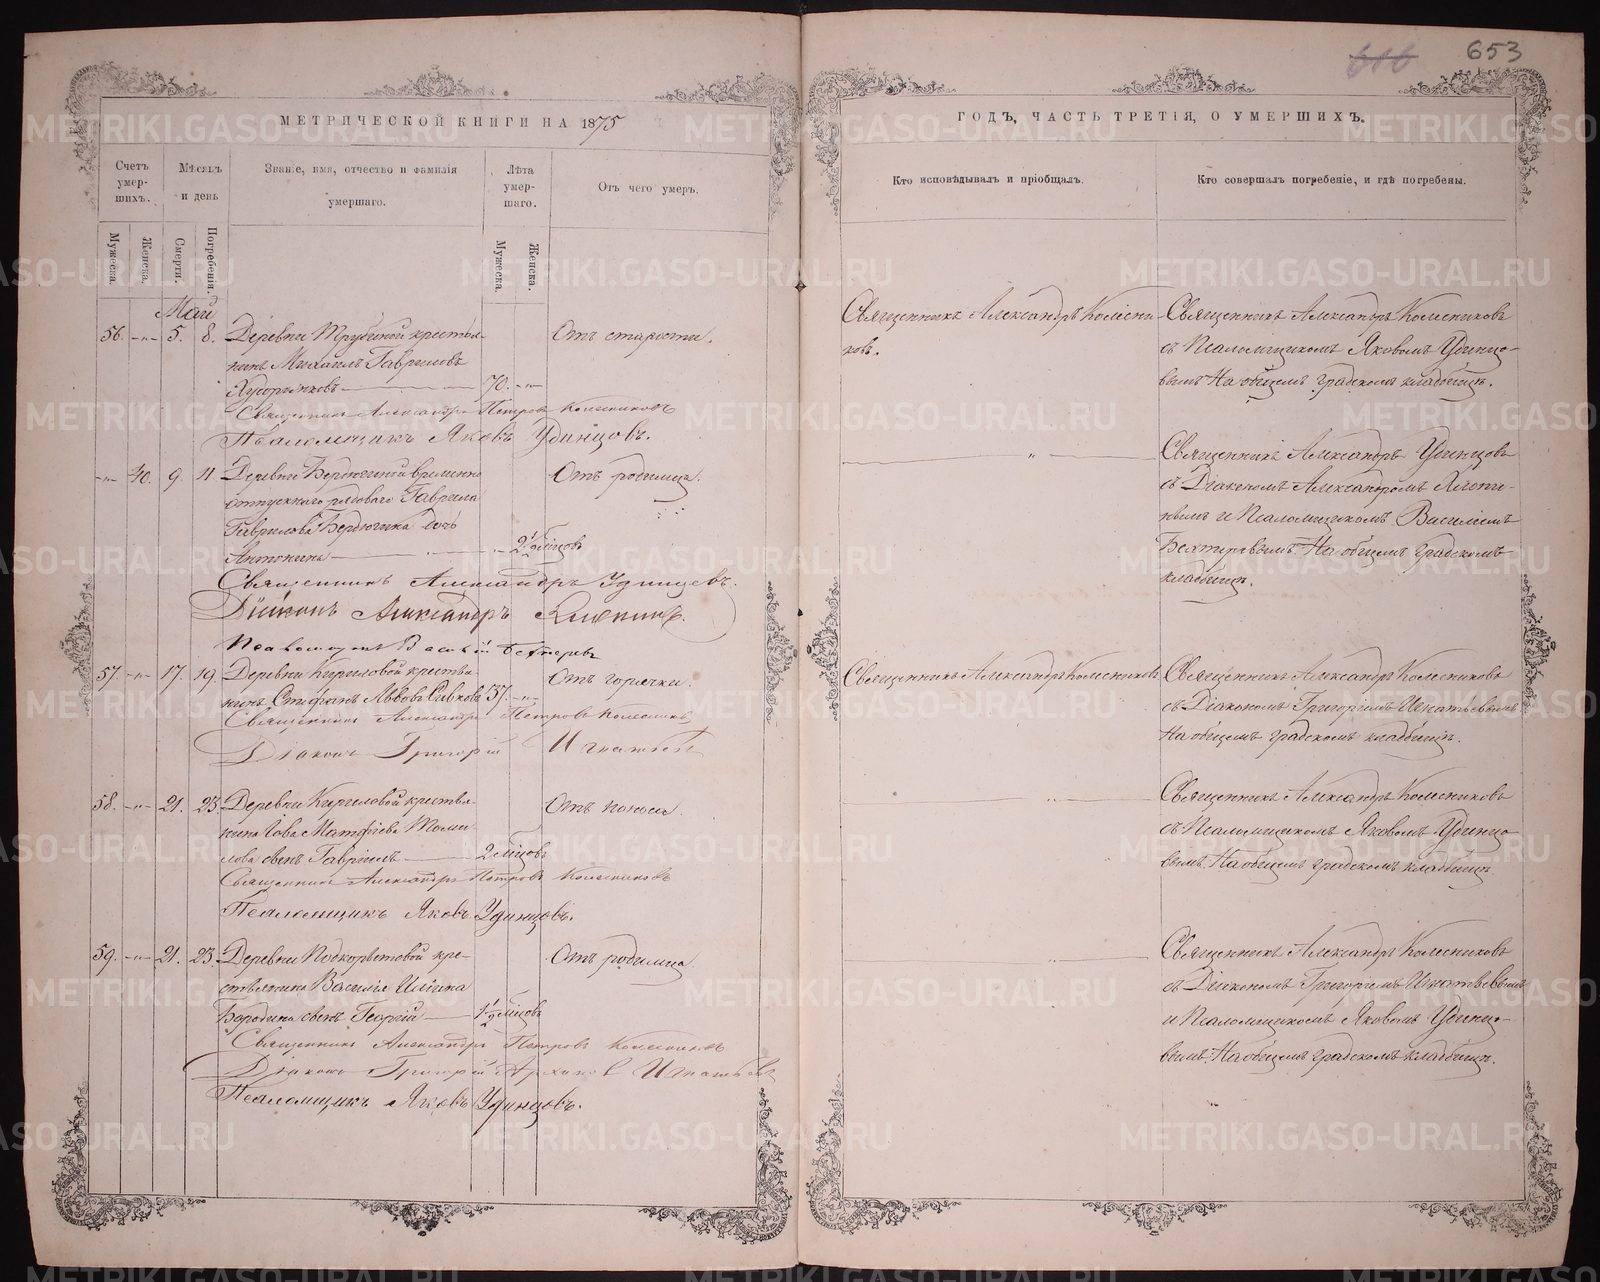 616 653
МЕТРИЧЕСКОЙ КНИГИ НА 1875
ГОДЪ, ЧАСТЬ ТРЕТІЯ, О УМЕРШИХЪ.
Счетъ умер-шихъ.
Мѣсяцъ и день
Званіе, имя, отчество и фамилія умершаго.
Лѣта умер-шаго.
Отъ чего умеръ.
Кто исповѣдывалъ и пріобщалъ.
Кто совершалъ погребеніе, и гдѣ погребены.
Мужеска.
Женска.
Смерти.
Погребенія.
Мужеска.
Женска.
Май
56. -"- 5. 8. Деревни Трубиной крестья-
нинъ Михаилъ Гавриловъ
70. -"-
Отъ старости.
Священникъ Александръ Колесни-
ковъ.
Священникъ Александръ Колесниковъ
съ Псаломщикомъ Яковомъ Удинцо-
вымъ На общемъ градскомъ кладбищѣ.
Священникъ Александръ Петровъ Колесниковъ
Псаломщикъ Яковъ Удинцовъ.
-"- 40. 9. 11. Деревни Бердюгиной временно
отпускнаго рядоваго Гаврила
Гаврилова Бердюгина дочь
Антонина 2 1/2 мѣсяцовъ
Отъ родимца.
"
Священникъ Александръ Удинцовъ
съ Діакономъ Александромъ
и Псаломщикомъ Василіемъ
На общемъ градскомъ
кладбищѣ.
Священникъ Александръ Удинцевъ.
Діаконъ Александръ
Псаломщикъ Василій
57. -"- 17. 19. Деревни Кириловой крестья-
нинъ Стефанъ Львовъ 37. -"-
Отъ горячки.
Священникъ Александръ Колесниковъ
Священникъ Александръ Колесниковъ
съ Діакономъ Григоріемъ Игнатьевымъ
На общемъ градскомъ кладбищѣ.
Священникъ Александръ Петровъ Колесниковъ
Діаконъ Григорій Игнатьевъ
58. -"- 21. 23. Деревни Кириловой крестья-
нина Іова Матѳіева
сынъ Гавріилъ 2 мѣсяцовъ
Отъ поноса.
"
Священникъ Александръ Колесниковъ
съ Псаломщикомъ Яковомъ Удинцо-
вымъ. На общемъ градскомъ кладбищѣ.
Священникъ Александръ Петровъ Колесниковъ
Псаломщикъ Яковъ Удинцовъ.
59. -"- 21. 23. Деревни Подкорытовой кре-
стьянина Василія Ильина
Бородина сынъ Георгій 1 1/2 мѣсяцовъ
Отъ родимца.
"
Священникъ Александръ Колесниковъ
съ Діакономъ Григоріемъ Игнатьевымъ
и Псаломщикомъ Яковомъ Удинцо-
вымъ. На общемъ градскомъ кладбищѣ.
Священникъ Александръ Петровъ Колесниковъ
Діаконъ Григорій Игнатьевъ
Псаломщикъ Яковъ Удинцовъ.
METRIKI.GASO-URAL.RU